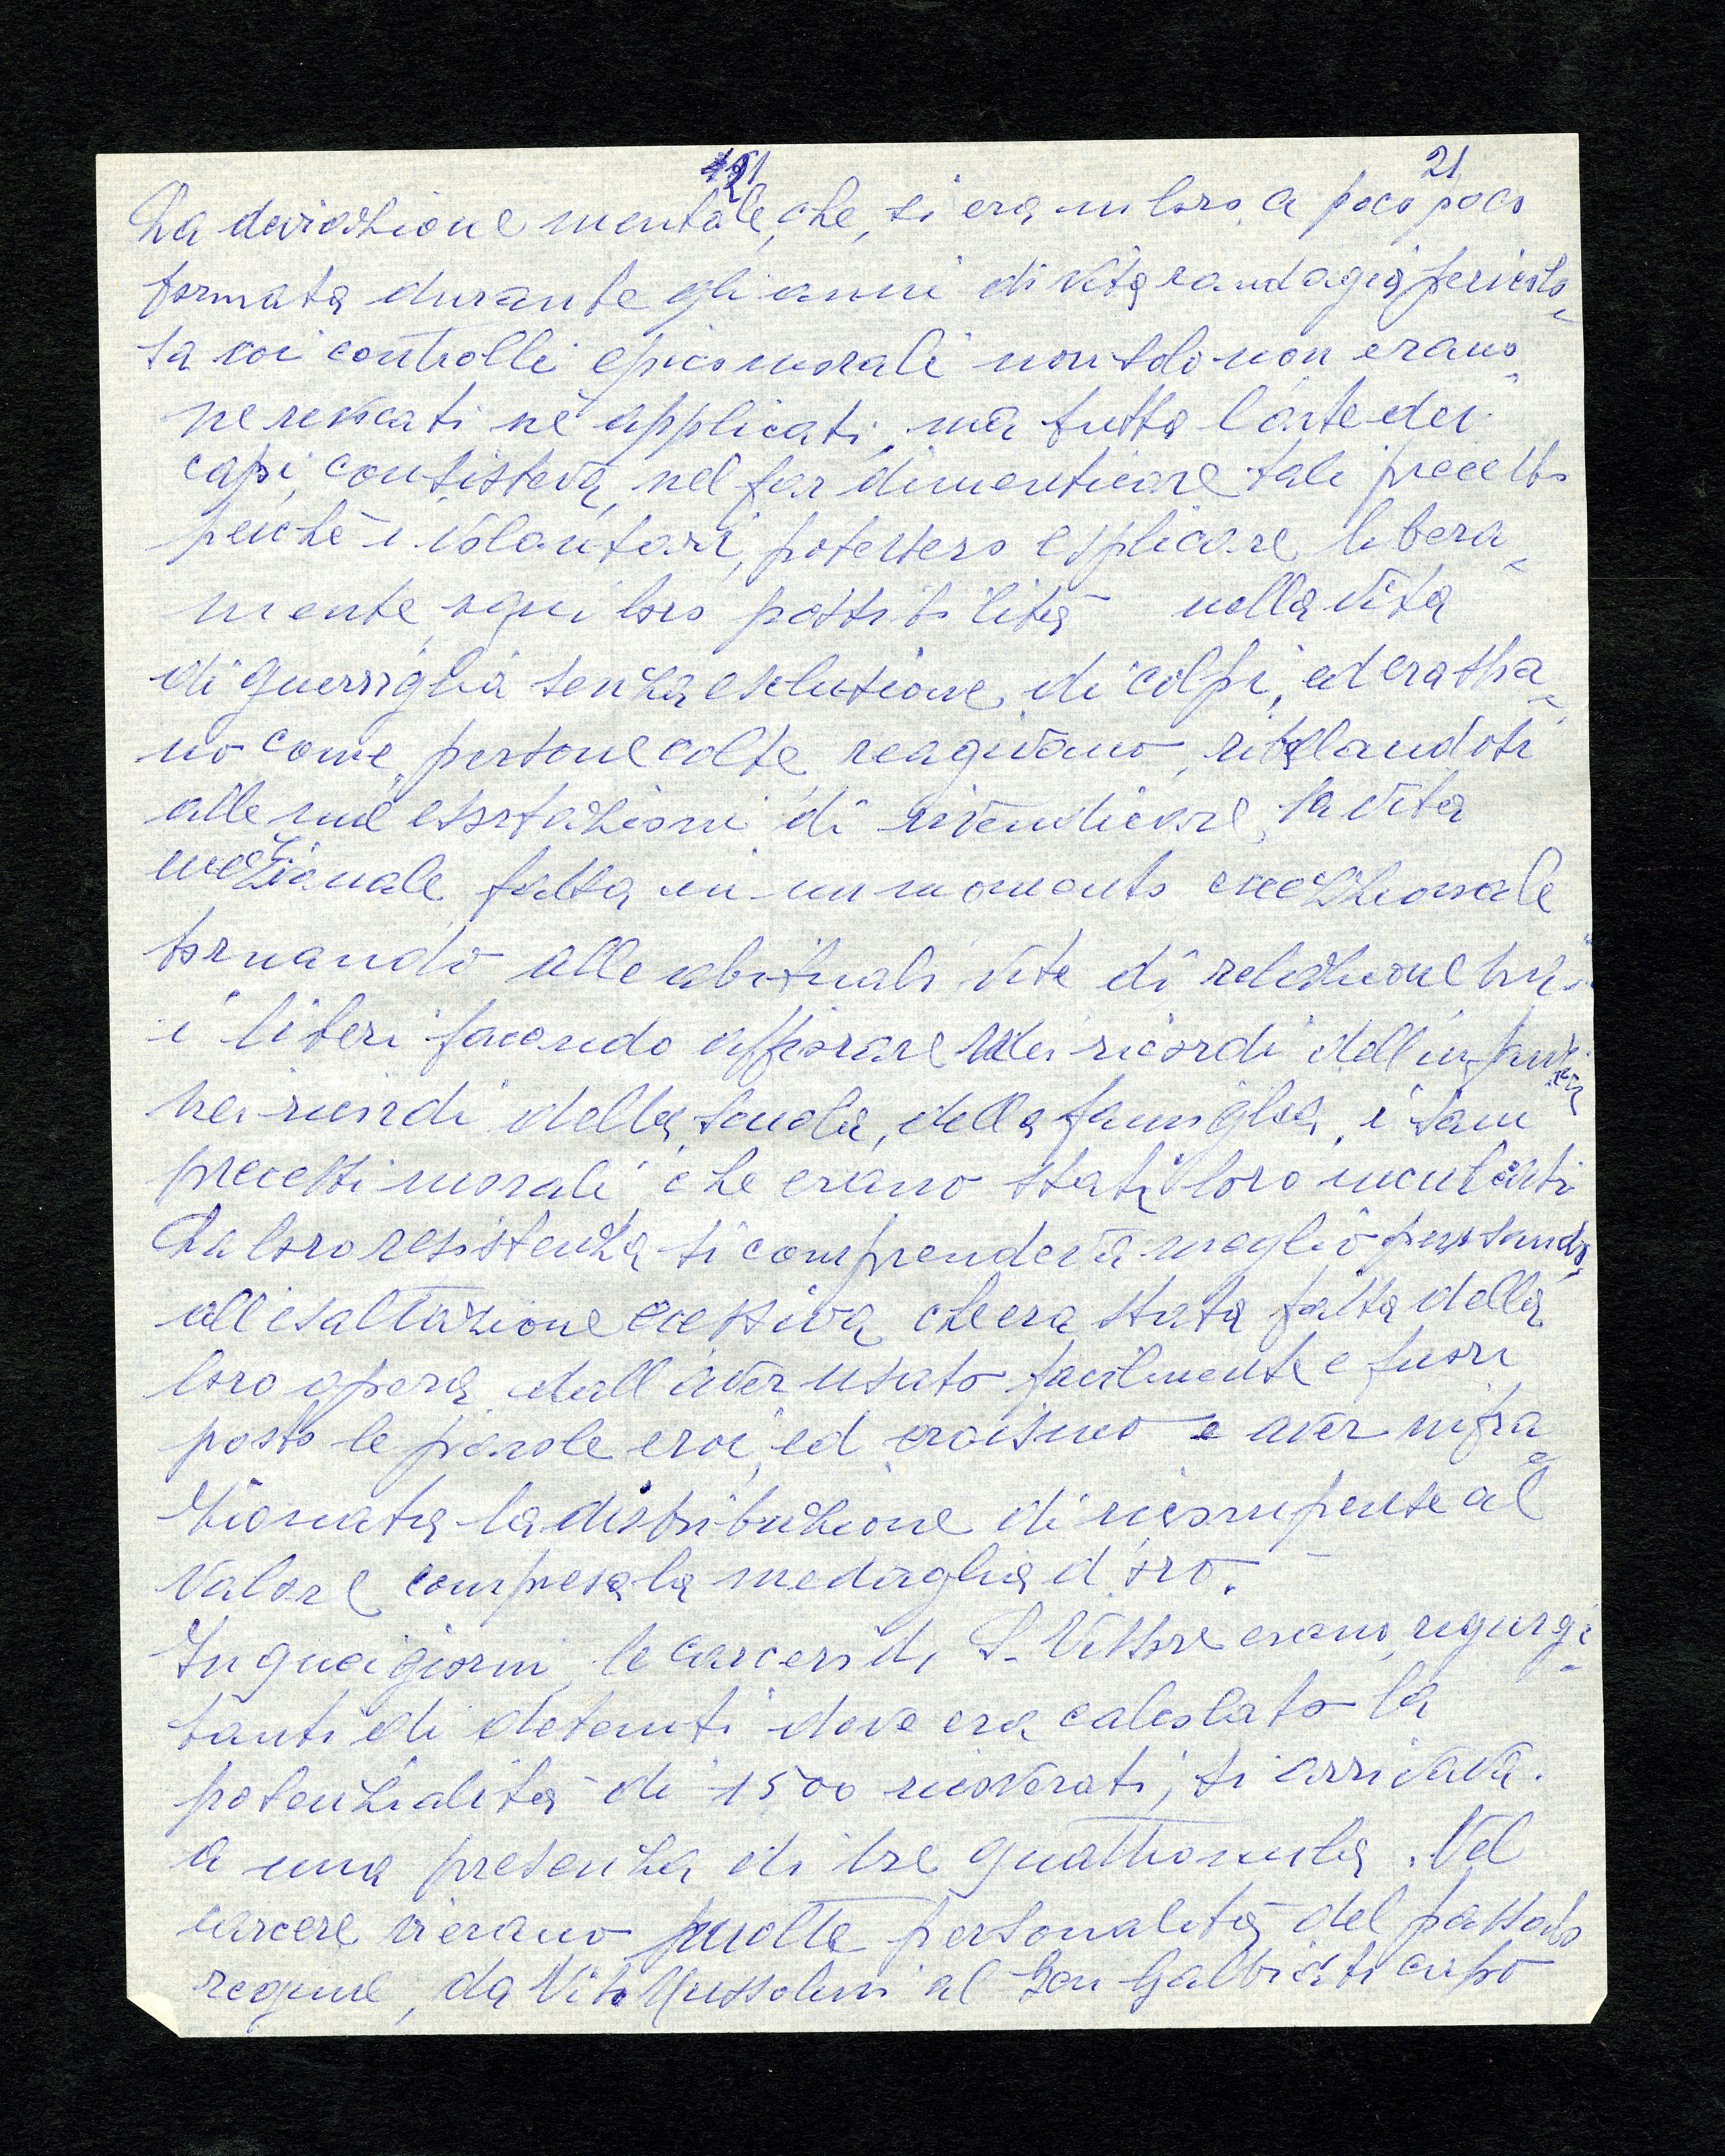 21
La deviazione mentale, che, si era in loro a poco poco
formata durante gli anni di vita randagia pericolo-
sa coi controlli epico morali non solo non erano
ne revocati nè applicati, ma tutta l'arte dei
capi, consisteva, nel far dimenticare tali precetti
perchè i volontari, potessero esplicare libera-
mente, ogni loro possibilità nella vita
di guerriglia senza esclusione, di colpi, ed era stra-
no come, persone colte, reagivano, ribellandosi
alle mie esortazioni di rivendicare, la vita
eccezionale fatta in un momento eccezionale
tornando alle abituali vite di relazione tra
i liberi facendo affiorare dei ricordi dell'infanzia
nei ricordi della scuola, della famiglia, i sani
precetti morali che erano stati loro inculcati
La loro resistenza si comprenderà meglio pensando,
all'esaltazione eccessiva che era stata fatta della
loro opera, dall'aver usato facilmente e fuori
posto le parole eroi, ed eroismo e aver infra-
zionata la distribuzione di ricompense al
valore compresa la medaglia d'oro.
In quei giorni, le carceri di S. Vittore erano, rigurgi-
tanti di detenuti dove era calcolato la
potenzialità di 1500 ricoverati, si arrivava.
a una presenza di tre quattromila. Nel
carcere vi erano molte personalità del passato
regime, da Vito Mussolini al Gen Galbiati capo